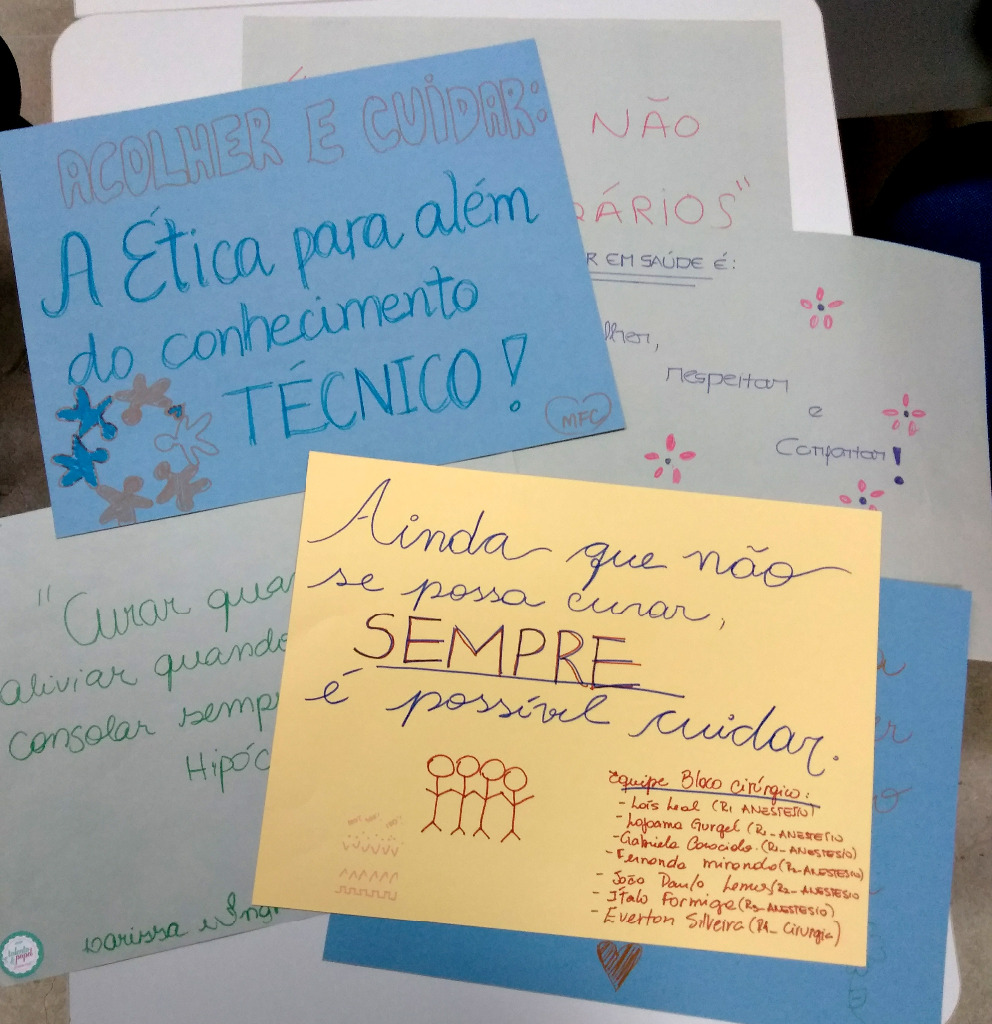 ACOLHER E CUIDAR:
A Ética para além
do conhecimento
TÉCNICO!
MFC
NÃO
ÁRIOS"
R EM SAÚDE É:
lher,
respeitar
e
Confortar!
"Curar quan
aliviar quando
consolar semp
Hipóc
Larissa e Ing
Ainda que não
se possa curar,
SEMPRE
é possível cuidar.
Equipe Bloco Cirúrgico:
- Laís Leal (R1 ANESTESIO)
- Gurgel (R1-ANESTESIO
- Gabriela (R1-ANESTESIO)
- Fernanda miranda (R2-ANESTESIO)
- João Paulo Lemos (R2-ANESTESIO
- Ítalo Formiga (R3-ANESTESIO)
- Éverton Silveira (R1- Cirurgia)